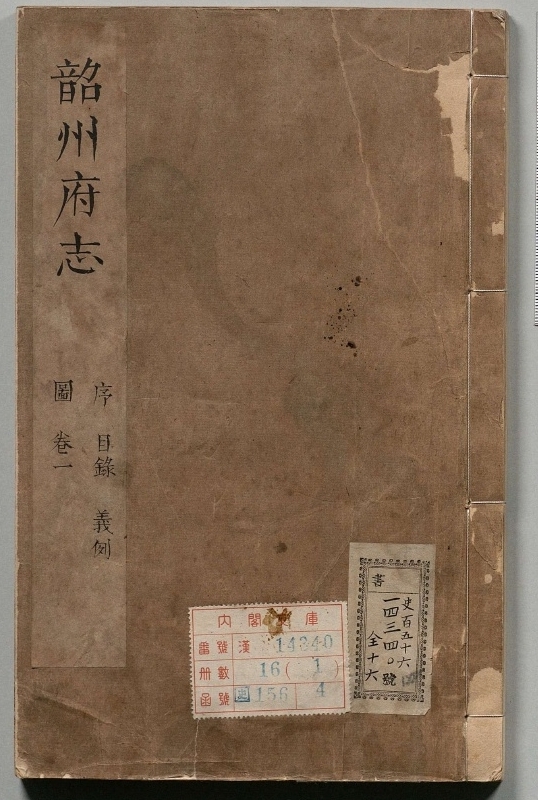 韶州府志
序 目錄 義例
圖 卷一
書
史百五十六
一四三四〇號
全十六
內閣文庫
番號 漢 14340
冊數 16( 1 )
函號 史 156 4